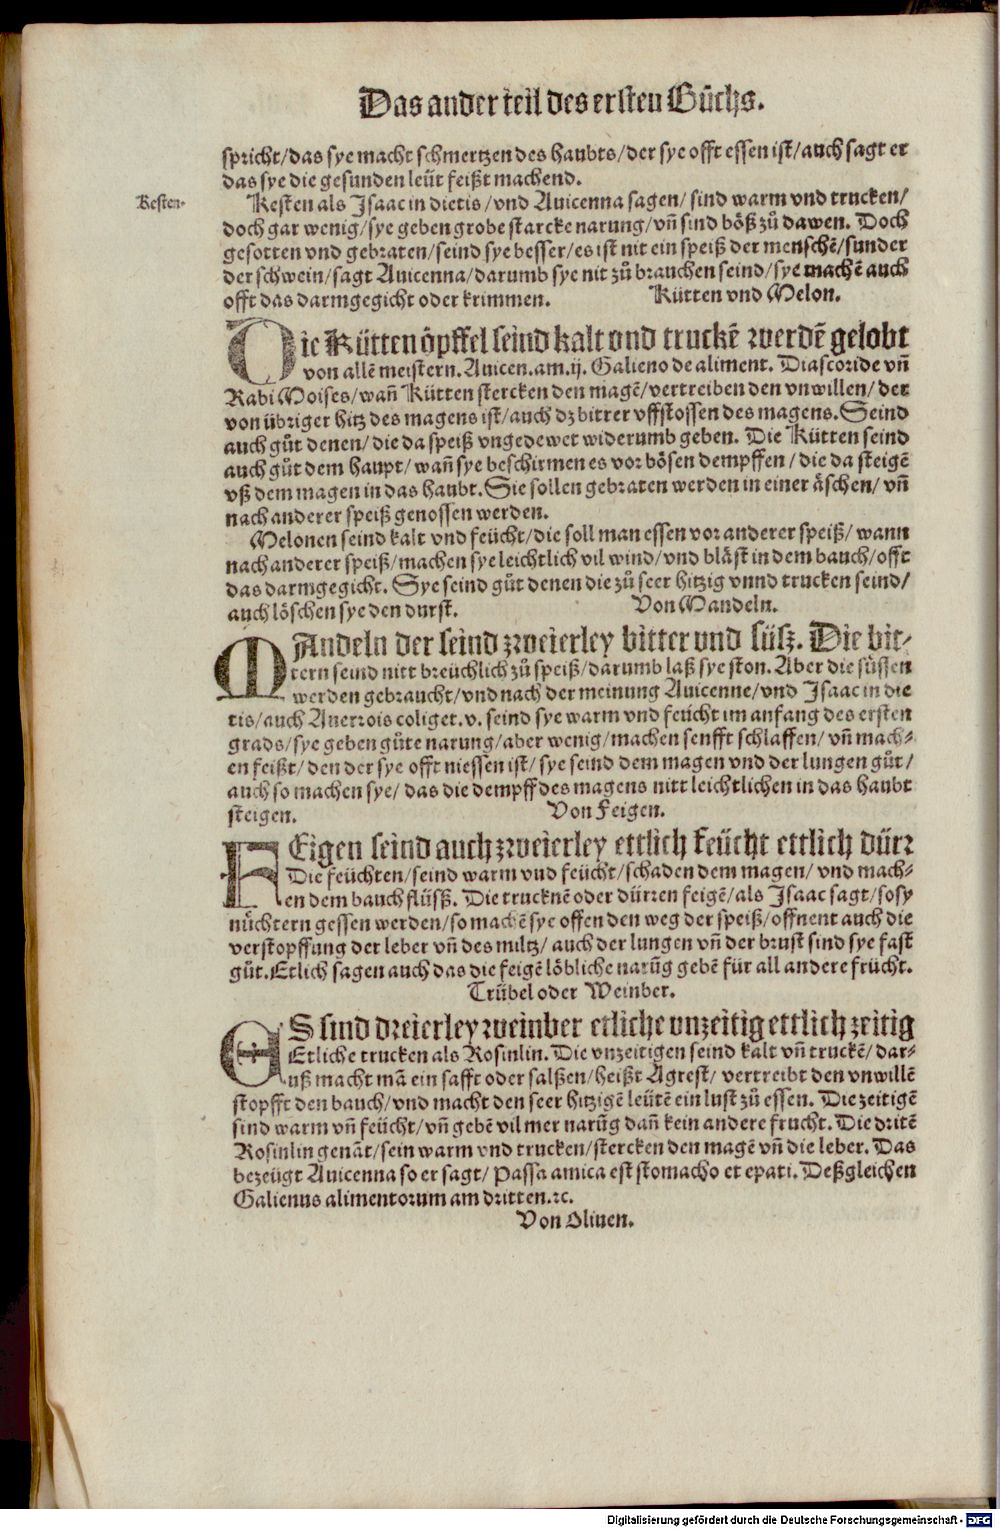 Das ander teil des ersten Bůchs.
spricht/das sye macht schmertzen des haubts/der sye offt essen ist/auch sagt er
das sye die gesunden leüt feißt machend.
Kesten.
Kesten als Isaac in dietis/vnd Auicenna sagen/sind warm vnd trucken/
doch gar wenig/sye geben grobe starcke narung/vñ sind böß zů dawen. Doch
gesotten vnd gebraten/seind sye besser/es ist nit ein speiß der menschẽ/sunder
der schwein/sagt Auicenna/darumb sye nit zů brauchen seind/sye machẽ auch
offt das darmgegicht oder krimmen. Kütten vnd Melon.
Die Kütten öpffel seind kalt vnd truckẽ werdẽ gelobt
von allẽ meistern. Auicen.am.ij. Galieno de aliment. Diascoride vñ
Rabi Moises/wañ Kütten stercken den magẽ/vertreiben den vnwillen/der
von übriger hitz des magens ist/auch dz bitter vffstossen des magens. Seind
auch gůt denen/die da speiß vngedewet widerumb geben. Die Kütten seind
auch gůt dem haupt/wañ sye beschirmen es vor bösen dempffen/die da steigẽ
vß dem magen in das haubt. Sie sollen gebraten werden in einer äschen/vñ
nach anderer speiß genossen werden.
Melonen seind kalt vnd feücht/die soll man essen vor anderer speiß/wann
nach anderer speiß/machen sye leichtlich vil wind/vnd bläst in dem bauch/offt
das darmgegicht. Sye seind gůt denen die zů seer hitzig vnnd trucken seind/
auch löschen sye den durst. Von Mandeln.
MAndeln der seind zweierley bitter vnd süsz. Die bit-
tern seind nitt breüchlich zů speiß/darumb laß sye ston. Aber die süssen
werden gebraucht/vnd nach der meinung Auicenne/vnd Isaac in die
tis/auch Auerrois coliget.v. seind sye warm vnd feücht im anfang des ersten
grads/sye geben gůte narung/aber wenig/machen senfft schlaffen/vñ mach-
en feißt/den der sye offt niessen ist/sye seind dem magen vnd der lungen gůt/
auch so machen sye/das die dempff des magens nitt leichtlichen in das haubt
steigen. Von Feigen.
FEigen seind auch zweierley ettlich feücht ettlich dürr
Die feüchten/seind warm vnd feücht/schaden dem magen/vnd mach-
en dem bauch flüsß. Die trucknẽ oder dürren feigẽ/als Isaac sagt/so sy
nůchtern gessen werden/so machẽ sye offen den weg der speiß/offnent auch die
verstopffung der leber vñ des miltz/auch der lungen vñ der brust sind sye fast
gůt. Etlich sagen auch das die feigẽ löbliche narũg gebẽ für all andere frücht.
Trübel oder Weinber.
ES sind dreierley weinber etliche vnzeitig ettlich zeitig
Etliche trucken als Rosinlin. Die vnzeitigen seind kalt vñ truckẽ/dar-
uß macht mã ein safft oder salßen/heißt Agrest/vertreibt den vnwillẽ
stopfft den bauch/vnd macht den seer hitzigẽ leütẽ ein lust zů essen. Die zeitigẽ
sind warm vñ feücht/vñ gebẽ vil mer narũg dañ kein andere frucht. Die dritẽ
Rosinlin genãt/sein warm vnd trucken/stercken den magẽ vñ die leber. Das
bezeügt Auicenna so er sagt/Passa amica est stomacho et epati. Deßgleichen
Galienus alimentorum am dritten.ꝛc.
Von Oliuen.
Digitalisierung gefördert durch die Deutsche Forschungsgemeinschaft - DFG